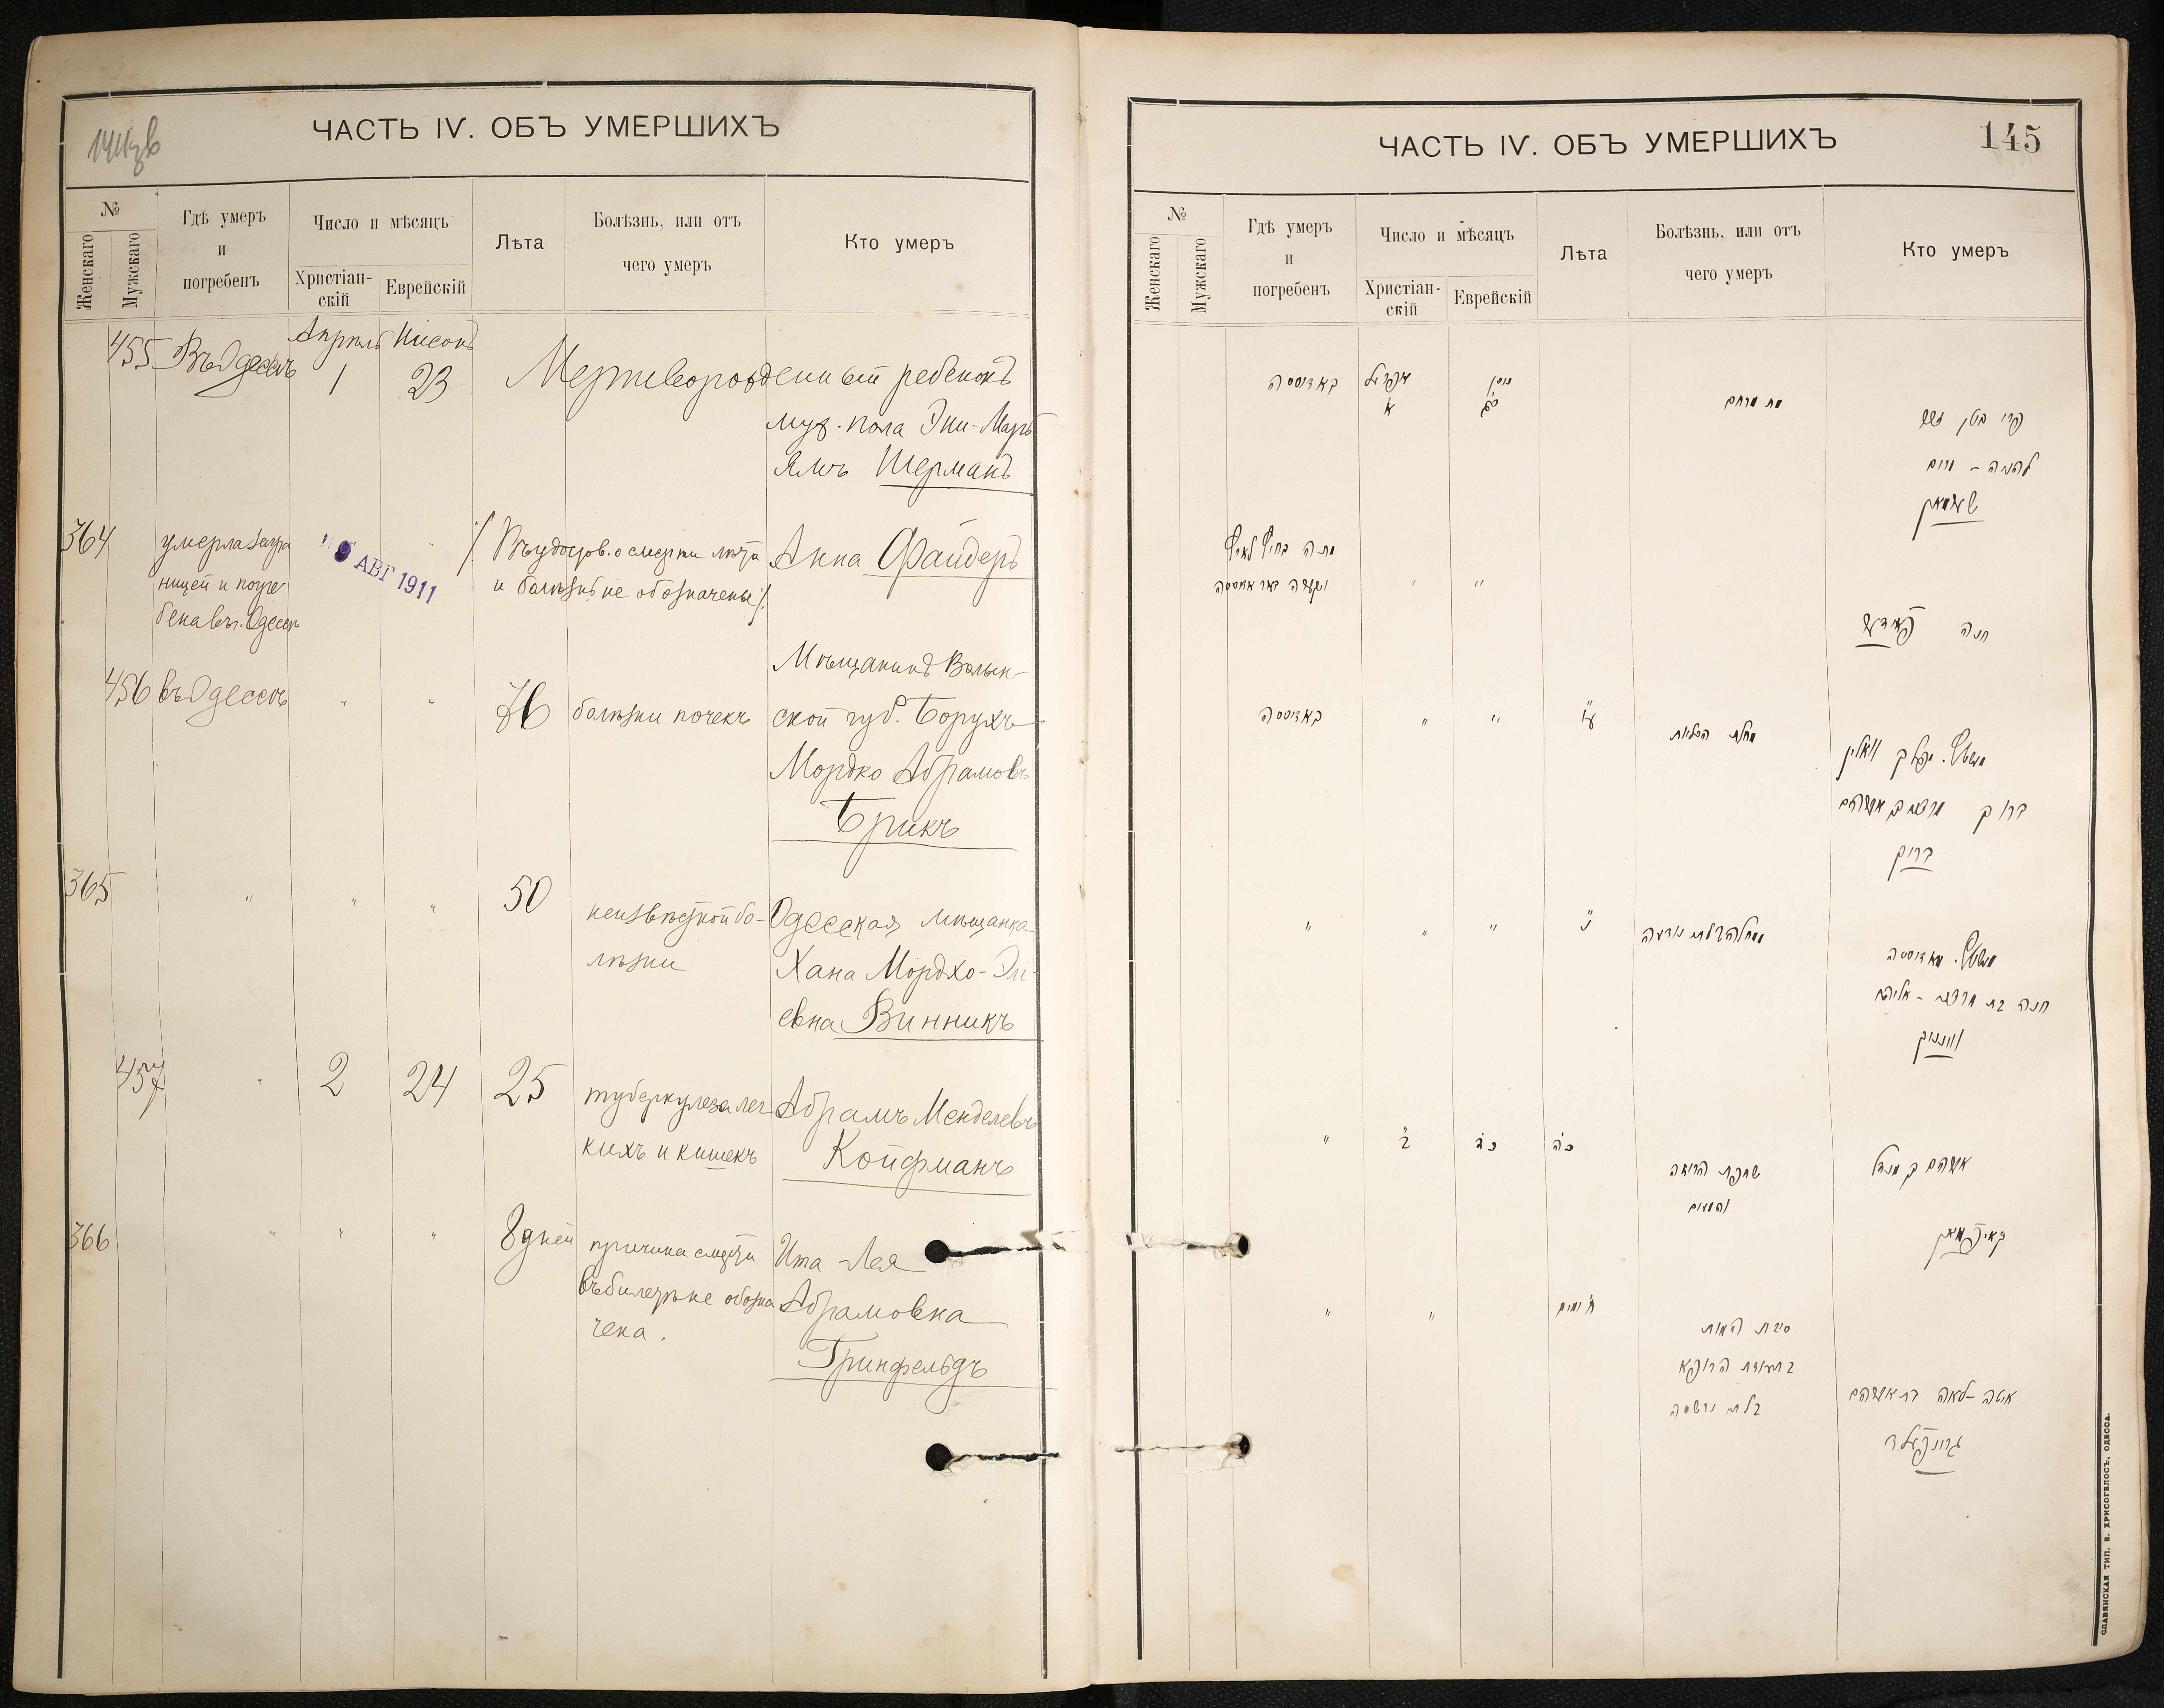 144 об
ЧАСТЬ IV. ОБЪ УМЕРШИХЪ
№
Женскаго
Мужскаго
Гдѣ умеръ
и
погребенъ
Число и мѣсяцъ
Христіан-
скій
Еврейскій
Лѣта
Болѣзнь, или отъ
чего умеръ
Кто умеръ
455 Въ Одессѣ Апрѣль 1 Нисонъ 23 Мертворожденный ребенокъ
муж. пола Эни-Марь
ямъ Шерманъ
364 умерла загра
ницей и погре
бена въ г. Одессѣ
9 АВГ 1911
/Въ удостов. о смерти лѣта
и болѣзнь не обозначены/.
Анна Файдеръ
456 въ Одессѣ " " 76 болѣзни почекъ
Мѣщанинъ Волын-
ской губ. Борухъ-
Мордко Абрамовъ
Брикъ
365 " " " 50 неизвѣстной бо-
лѣзни
Одесская мѣщанка
Хана Мордхо-Эли-
евна Винникъ
457 " 2 24 25 туберкулеза лег
кихъ и кишекъ
Абрамъ Менделевъ
Койфманъ
366 " " " 8 дней причина смерти
въ билетѣ не обозна
чена.
Ита-Лея
Абрамовна
Гринфельдъ
ЧАСТЬ IV. ОБЪ УМЕРШИХЪ
145
№
Женскаго
Мужскаго
Гдѣ умеръ
и
погребенъ
Число и мѣсяцъ
Христіан-
скій
Еврейскій
Лѣта
Болѣзнь, или отъ
чего умеръ
Кто умеръ
באדיססה אפריל א ניסן כ֗ג֗ מת מרחם
פרי בטן זכר
שערמאן
מתה בחו״ל
" "
חנה פֿיידער
באדיססה " " ע֗ו֗ מחלת הכליות
ברוך מרדכי ב אברהם
בריק
" " " נ֗
חנה בת מרדכי - אליהו
וויניק
" ב֗ כ֗ד֗ כ֗ה֗ שחפת הריאה
והמעים
אברהם ב מנדל
קויפֿמאן
" " ח֗ ימים
סיבת המות
בתעודת הרופא
בלתי נרשמה
איטה-לאה בת אברהם
גרינפֿעלד
СЛАВЯНСКАЯ ТИП. Е. ХРИСОГЕЛОСЪ, ОДЕССА.